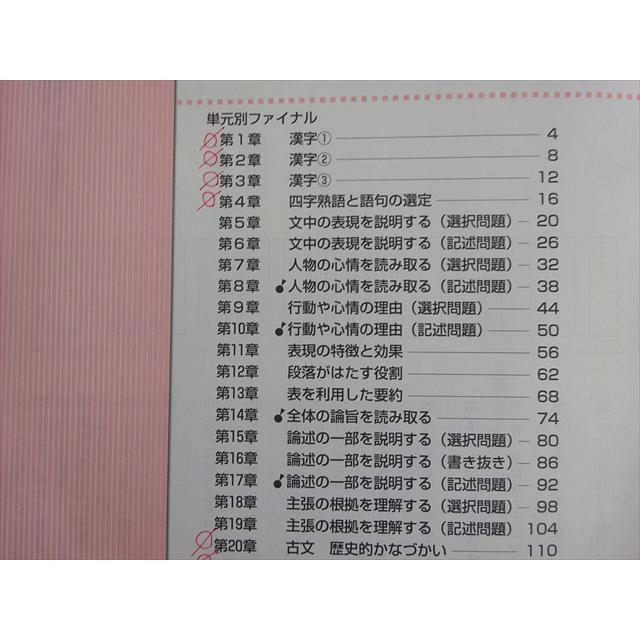 単元別ファイナル
第1章 漢字① 4
第2章 漢字② 8
第3章 漢字③ 12
第4章 四字熟語と語句の選定 16
第5章 文中の表現を説明する（選択問題） 20
第6章 文中の表現を説明する（記述問題） 26
第7章 人物の心情を読み取る（選択問題） 32
第8章 人物の心情を読み取る（記述問題） 38
第9章 行動や心情の理由（選択問題） 44
第10章 行動や心情の理由（記述問題） 50
第11章 表現の特徴と効果 56
第12章 段落がはたす役割 62
第13章 表を利用した要約 68
第14章 全体の論旨を読み取る 74
第15章 論述の一部を説明する（選択問題） 80
第16章 論述の一部を説明する（書き抜き） 86
第17章 論述の一部を説明する（記述問題） 92
第18章 主張の根拠を理解する（選択問題） 98
第19章 主張の根拠を理解する（記述問題） 104
第20章 古文 歴史的かなづかい 110